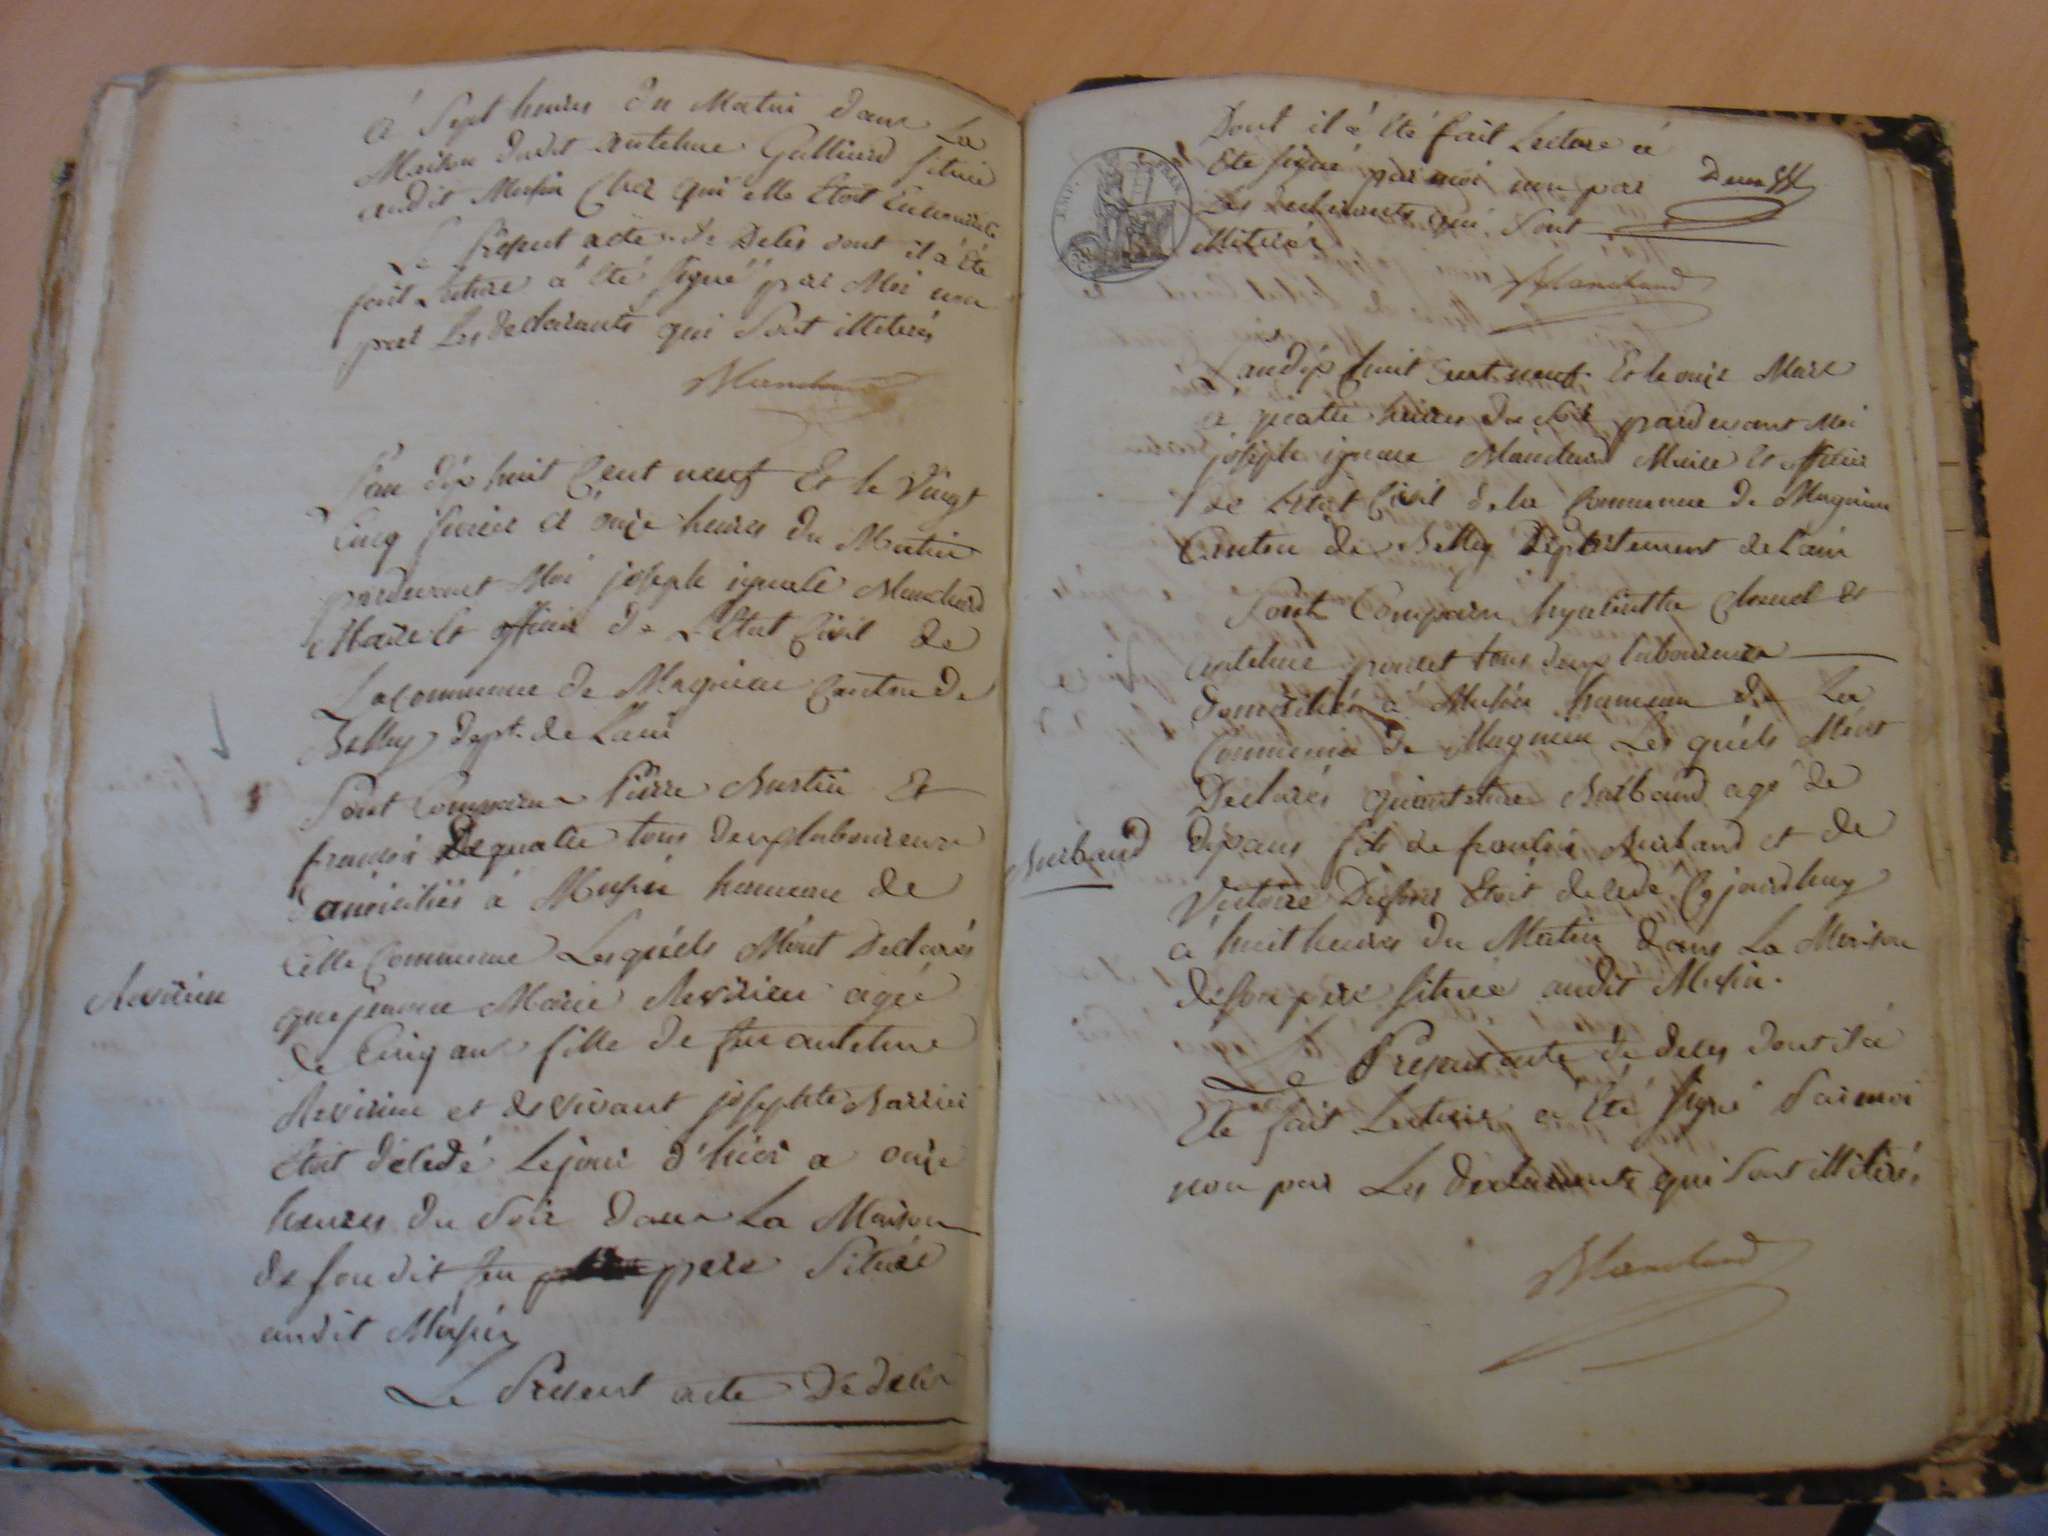 à Sept heures du Matin dans La
Maison dudit antelme Galliard Située
audit Musin Chez qui elle Etoit
Le Présent acte de Deces dont il à Eté
fait Lecture à Eté Signé par Moi non
par Les declarants qui Sont illiterés
Marchand
L'an dix huit Cent neuf Et le Vingt
Cinq fevrier à onze heures du Matin
pardevant Moi joseph ignace Marchand
Maire Et officier de L'Etat Civil de
La commune de Magnieu Canton de
Belley dept. de L'ain
Sont Comparu Pierre Burtin Et
francois Dequatre tous deux laboureurs
domiciliés à Musin hameau de
Cette Commune Lesquels M'ont Declarés
que jeanne Marie Revirieu agée
de Cinq ans fille de feu antelme
Revirieu et de vivant josephte
Etoit décédé Le jour d'hier a onze
heures du Soir dans La Maison
de Son dit feu pere Située
audit Musin
Le Présent acte De deces
Revirieu
Dont il à Eté fait Lecture à
Eté Signé par moi non par
Les declarants qui Sont
illiterés
Marchand
EMP. FRAN.
L'an dix huit Cent neuf Et le onze Mars
a quatre heures du Soir pardevant Moi
joseph ignace Marchand Maire Et officier
de L'Etat Civil de la Commune de Magnieu
Canton de Belley Département de L'ain
Sont Comparu hyacinthe Chanel Et
antelme poncet tous deux laboureurs
domiciliés à Musin hameau de La
Commune de Magnieu Lesquels M'ont
Declarés qu'antelme Burbaud agé de
dix ans fils de françois Burbaud et de
Victoire Etoit decedé Cejourdhuy
à huit heures du Matin dans La Maison
de Son pere Située audit Musin.
Le Présent acte de deces dont il à
Eté fait Lecture à Eté Signé Par moi
non par Les declarants qui Sont illiterés
Marchand
Burbaud